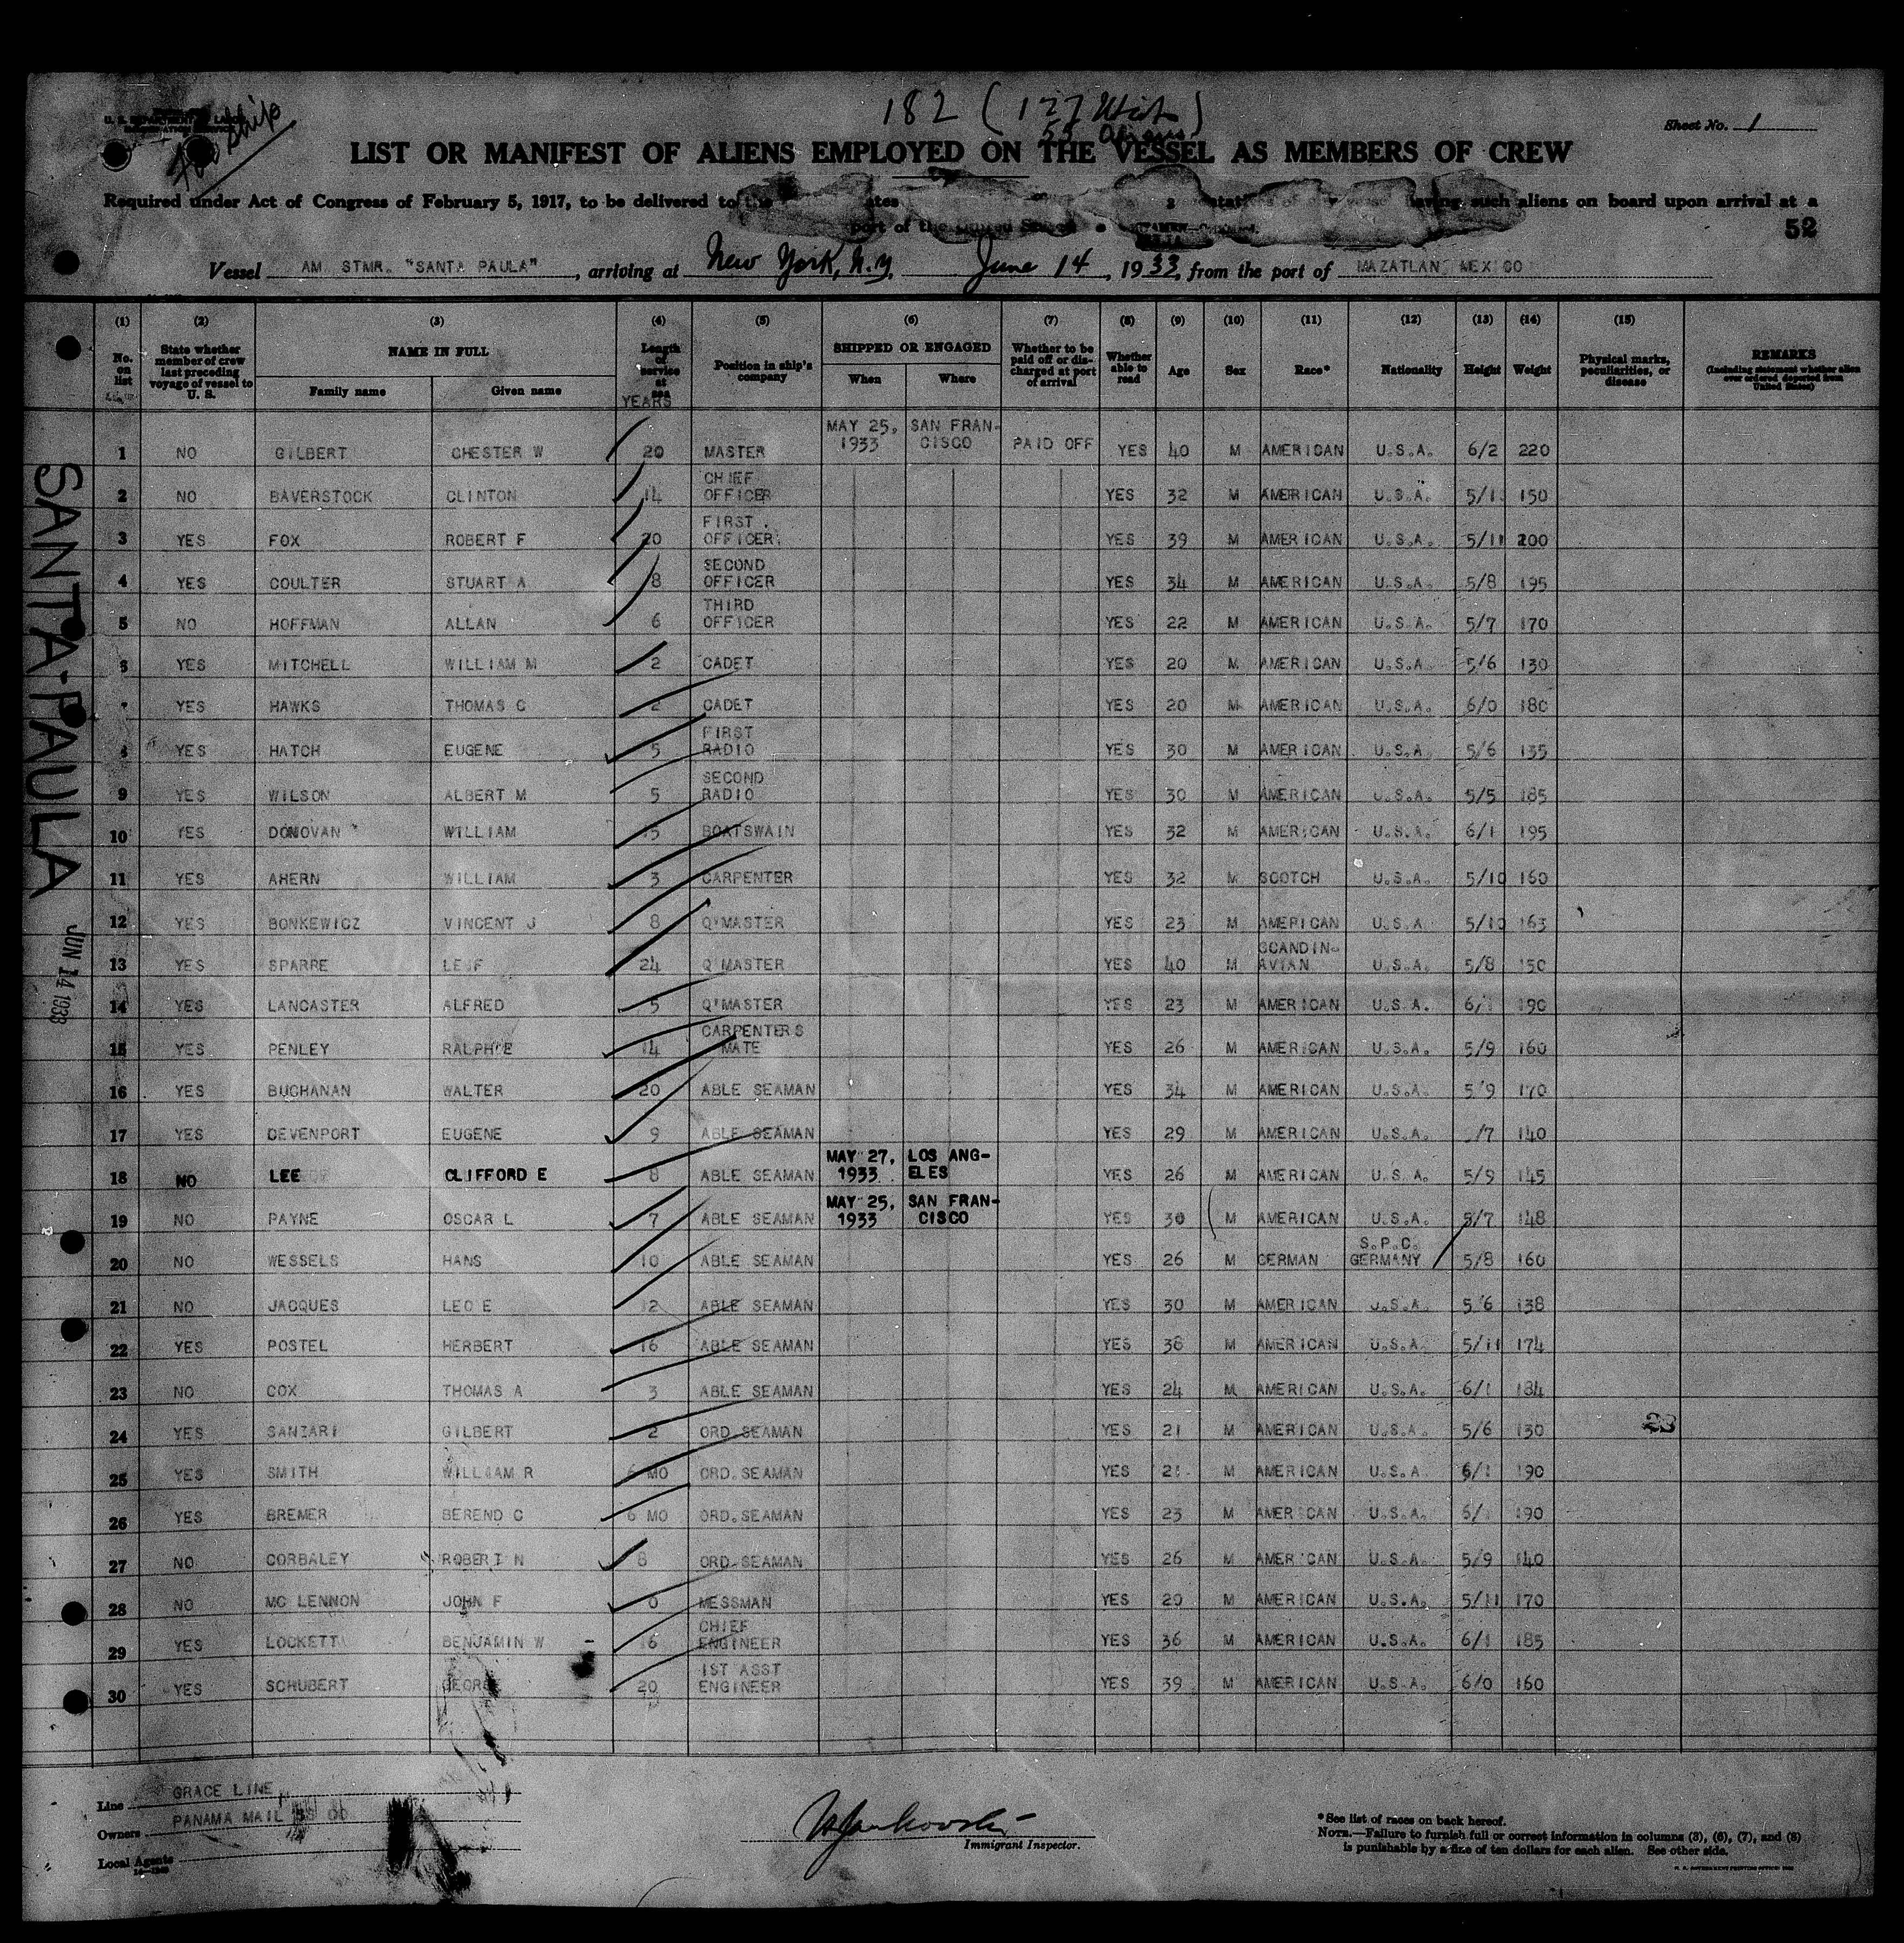 182 (127 
55 Aliens)
Sheet No. 1
U. S. DEPARTMENT OF LABOR
For ship
LIST OR MANIFEST OF ALIENS EMPLOYED ON THE VESSEL AS MEMBERS OF CREW
Required under Act of Congress of February 5, 1917, to be delivered to the having such aliens on board upon arrival at a
port of the United States
52
Vessel AM. STMR. "SANTA PAULA", arriving at New York, N.Y. June 14, 1933, from the port of MAZATLAN, MEXICO
(1) (2) (3) (4) (5) (6) (7) (8) (9) (10) (11) (12) (13) (14) (15)
No. on list
State whether member of crew last preceding voyage of vessel to U. S.
NAME IN FULL
Family name Given name
Length of service at sea
YEARS
Position in ship's company
SHIPPED OR ENGAGED
When Where
Whether to be paid off or discharged at port of arrival
Whether able to read
Age Sex Race* Nationality Height Weight
Physical marks, peculiarities, or disease
REMARKS
(Including statement whether alien ever ordered deported from United States)
1 NO GILBERT CHESTER W 20 MASTER MAY 25, 1933 SAN FRANCISCO PAID OFF YES 40 M AMERICAN U.S.A. 6/2 220
2 NO BAVERSTOCK CLINTON 14 CHIEF OFFICER YES 32 M AMERICAN U.S.A. 150
3 YES FOX ROBERT F 20 FIRST OFFICER YES 39 M AMERICAN U.S.A. 5/11 200
4 YES COULTER STUART A 8 SECOND OFFICER YES 34 M AMERICAN U.S.A. 5/8 195
5 NO HOFFMAN ALLAN 6 THIRD OFFICER YES 22 M AMERICAN U.S.A. 5/7 170
YES MITCHELL WILLIAM M 2 CADET YES 20 M AMERICAN U.S.A. 5/6 130
YES HAWKS THOMAS C 2 CADET YES 20 M AMERICAN U.S.A. 6/0 180
YES HATCH EUGENE 5 FIRST RADIO YES 30 M AMERICAN U.S.A. 5/6 135
9 YES WILSON ALBERT M 5 SECOND RADIO YES 30 M AMERICAN U.S.A. 5/5 185
10 YES DONOVAN WILLIAM 15 BOATSWAIN YES 32 M AMERICAN U.S.A. 6/1 195
11 YES AHERN WILLIAM 3 CARPENTER YES 32 M SCOTCH U.S.A. 5/10 160
12 YES BONKEWICZ VINCENT J 8 Q'MASTER YES 23 M AMERICAN U.S.A. 5/10 163
13 YES SPARRE LEIF 24 Q'MASTER YES 40 M SCANDINAVIAN U.S.A. 5/8 150
14 YES LANCASTER ALFRED 5 Q'MASTER YES 23 M AMERICAN U.S.A. 6/1 190
15 YES PENLEY RALPH E 14 CARPENTERS MATE YES 26 M AMERICAN U.S.A. 5/9 160
16 YES BUCHANAN WALTER 20 ABLE SEAMAN YES 34 M AMERICAN U.S.A. 5/9 170
17 YES DEVENPORT EUGENE 9 ABLE SEAMAN YES 29 M AMERICAN U.S.A. /7 140
18 NO LEE CLIFFORD E 8 ABLE SEAMAN MAY 27, 1933 LOS ANGELES YES 26 M AMERICAN U.S.A. 5/9 145
19 NO PAYNE OSCAR L 7 ABLE SEAMAN MAY 25, 1933 SAN FRANCISCO YES 30 M AMERICAN U.S.A. 5/7 148
20 NO WESSELS HANS 10 ABLE SEAMAN YES 26 M GERMAN S.P.C. GERMANY 5/8 160
21 NO JACQUES LEO E 12 ABLE SEAMAN YES 30 M AMERICAN U.S.A. 5/6 138
22 YES POSTEL HERBERT 16 ABLE SEAMAN YES 38 M AMERICAN U.S.A. 5/11 174
23 NO COX THOMAS A 3 ABLE SEAMAN YES 24 M AMERICAN U.S.A. 6/1 184
24 YES SANTARI GILBERT 2 ORD.SEAMAN YES 21 M AMERICAN U.S.A. 5/6 130
25 YES SMITH WILLIAM R 6 MO ORD.SEAMAN YES 21 M AMERICAN U.S.A. 6/1 190
26 YES BREMER BEREND C 6 MO ORD.SEAMAN YES 23 M AMERICAN U.S.A. 6/1 190
27 NO CORBALEY ROBERT N 8 ORD.SEAMAN YES 26 M AMERICAN U.S.A. 5/9 140
28 NO MC LENNON JOHN F 0 MESSMAN YES 20 M AMERICAN U.S.A. 5/11 170
29 YES LOCKETT BENJAMIN W 16 CHIEF ENGINEER YES 36 M AMERICAN U.S.A. 6/1 185
30 YES SCHUBERT GEORGE 20 1ST ASST ENGINEER YES 39 M AMERICAN U.S.A. 6/0 160
SANTA-PAULA
JUN 14 1933
Line GRACE LINE
Owners PANAMA MAIL SS CO
Local Agents
Immigrant Inspector.
*See list of races on back hereof.
NOTE.—Failure to furnish full or correct information in columns (3), (6), (7), and (8)
is punishable by a fine of ten dollars for each alien. See other side.